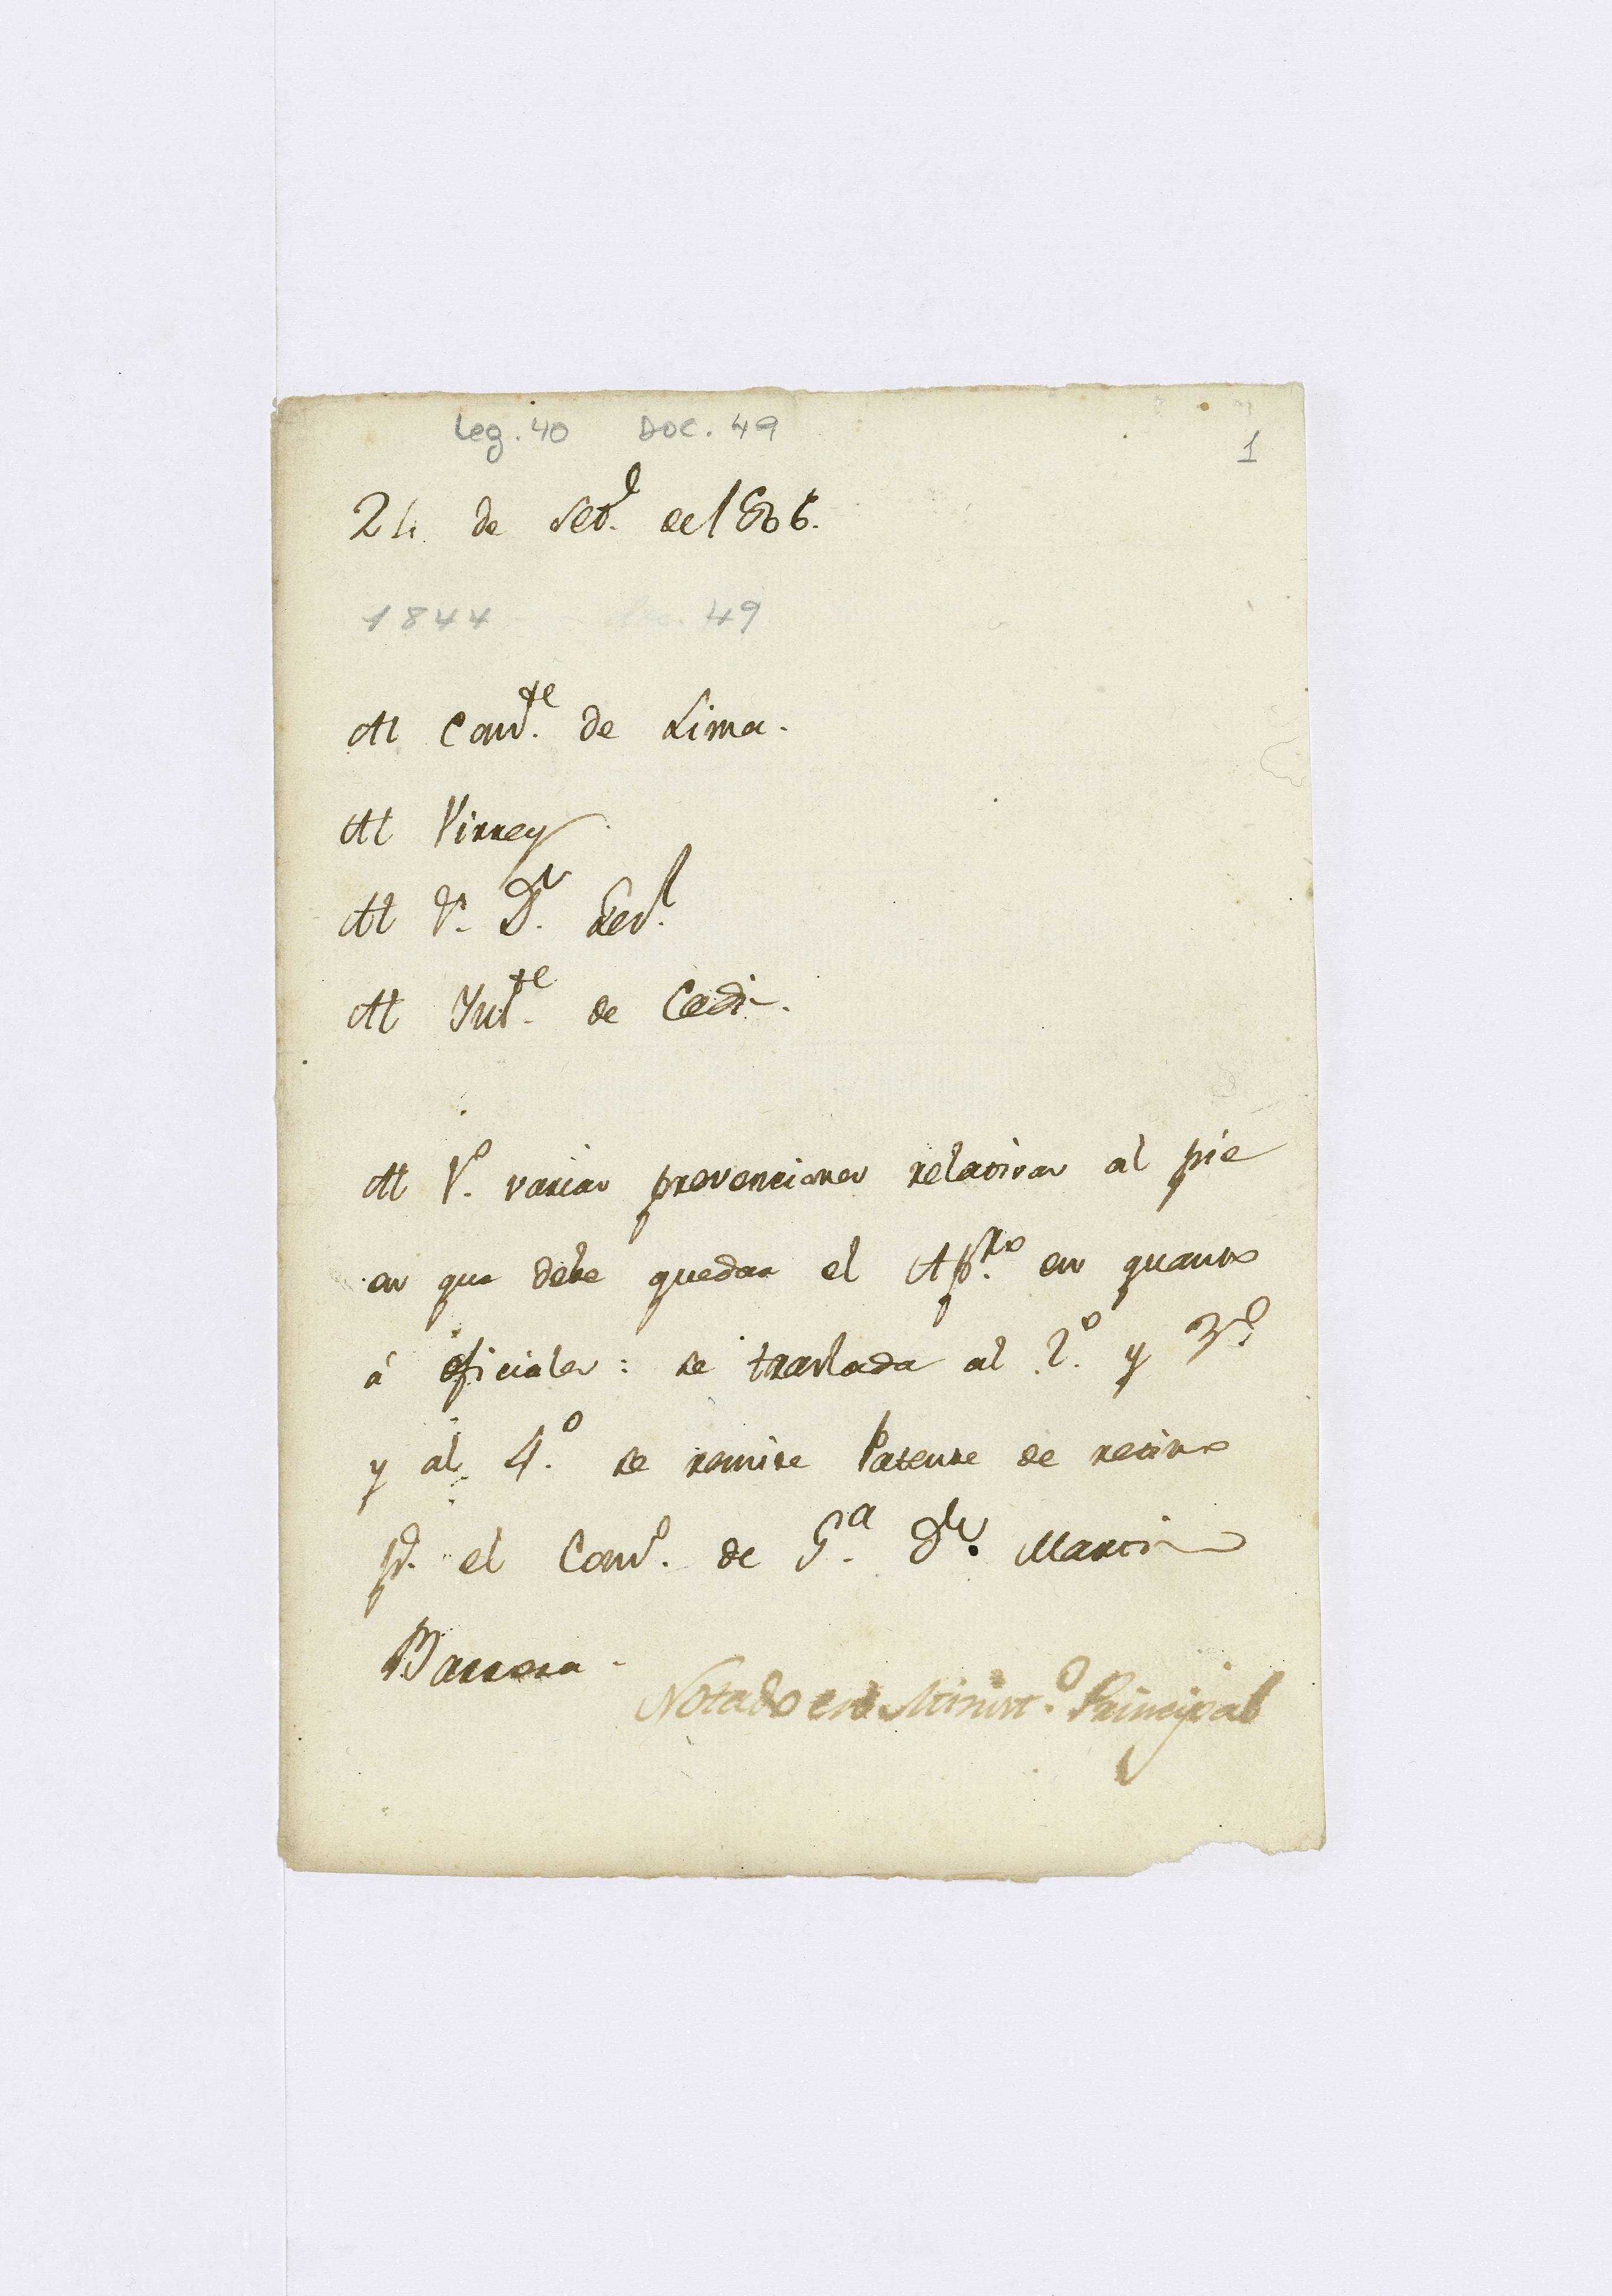 Leg. 40 Doc. 49
1
24 de Set.e de 1806.
1844 doc. 49
Al Com.te de Lima.
Al Virrey
Al V. D.r Gen.l
Al Int.te de Cadiz.
Al 1.o varias prevenciones relativas al pie
en que debe quedar el Ap.ro en quanto
á oficiales: se traslada al 2.o y 3.o
y al 4.o se remite Patente de retiro
p.a el Com.o de G.a D.n Martin
Barrera.
Notado en Minist.o Principal